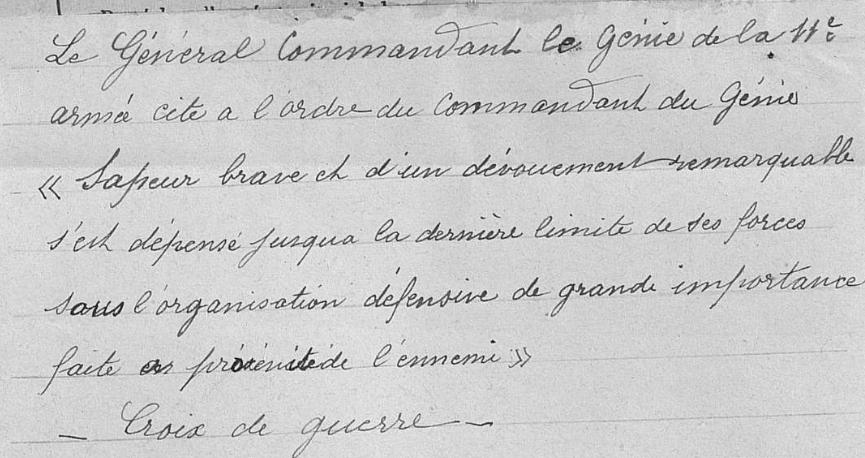 Le Général Commandant le Génie de la 11e
armée cite a l'ordre du Commandant du Génie
« Sapeur brave et d'un dévouement remarquable
s'est dépensé jusqua la dernière limite de ses forces
sous l'organisation défensive de grande importance
faite en proximité de l'ennemi »
— Croix de guerre —